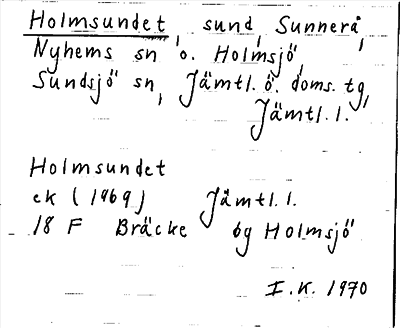 Holmsundet, sund, Sunnerå,
Nyhems sn o. Holmsjö,
Sundsjö sn, Jämtl. ö. doms. tg,
Jämtl. l.
Holmsundet
ek (1969) Jämtl. l.
18 F Bräcke bg Holmsjö
I.K. 1970